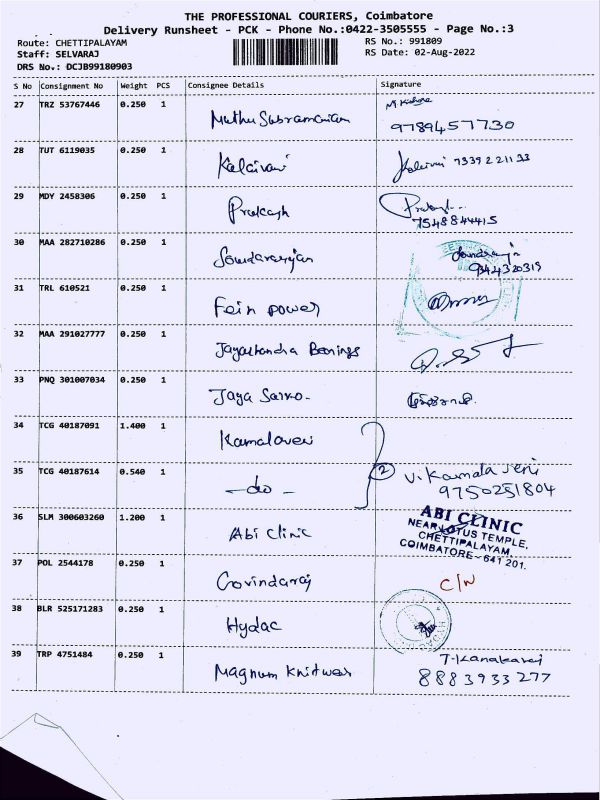 THE PROFESSIONAL COURIERS, Coimbatore
Delivery Runsheet - PCK - Phone No.:0422-3505555 - Page No.:3
Route: CHETTIPALAYAM RS No.: 991809
Staff: SELVARAJ RS Date: 02-Aug-2022
DRS No.: DCJB99180903
S No Consignment No Weight PCS Consignee Details Signature
27 TRZ 53767446 0.250 1 Muthu Subramanian
9789457730
28 TUT 6119035 0.250 1 Kalaivani Kalaivani 7339221133
29 MDY 2458306 0.250 1 Prakash
7548844415
30 MAA 282710286 0.250 1 Soundararajan
9244320319
31 TRL 610521 0.250 1 Fein power
32 MAA 291027777 0.250 1 Jayachandra Bearings
33 PNQ 301007034 0.250 1 Jaya Sarko-
34 TCG 40187091 1.400 1 Kamalaveni
35 TCG 40187614 0.540 1 -do- 2 V. Kamalaveni
9750251804
36 SLM 300603260 1.200 1 Abi Clinic
ABI CLINIC
NEAR LOTUS TEMPLE,
CHETTIPALAYAM
COIMBATORE-641 201.
37 POL 2544178 0.250 1 Govindaraj C/N
38 BLR 525171283 0.250 1 Hydac
39 TRP 4751484 0.250 1 Magnum Knitwear T. Kanakaraj
8883933277